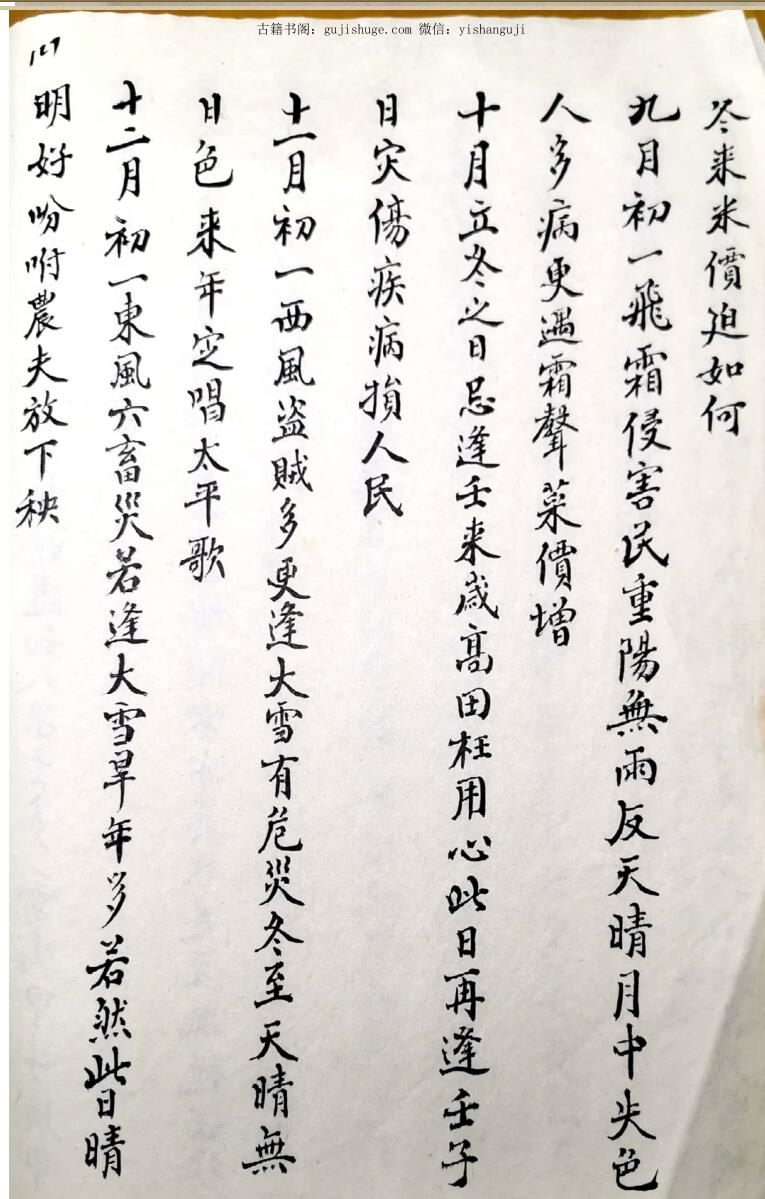 古籍书阁：gujishuge.com 微信：yishanguji
127
冬来米價迫如何
九月初一飛霜侵害民重陽無雨反天晴月中失色
人多病更遇霜聲菜價增
十月立冬之日忌逢壬来歲高田枉用心此日再逢壬子
日灾傷疾病損人民
十一月初一西風盗賊多更逢大雪有危災冬至天晴無
日色来年定唱太平歌
十二月初一東風六畜災若逢大雪旱年多若然此日晴
明好吩咐農夫放下秧